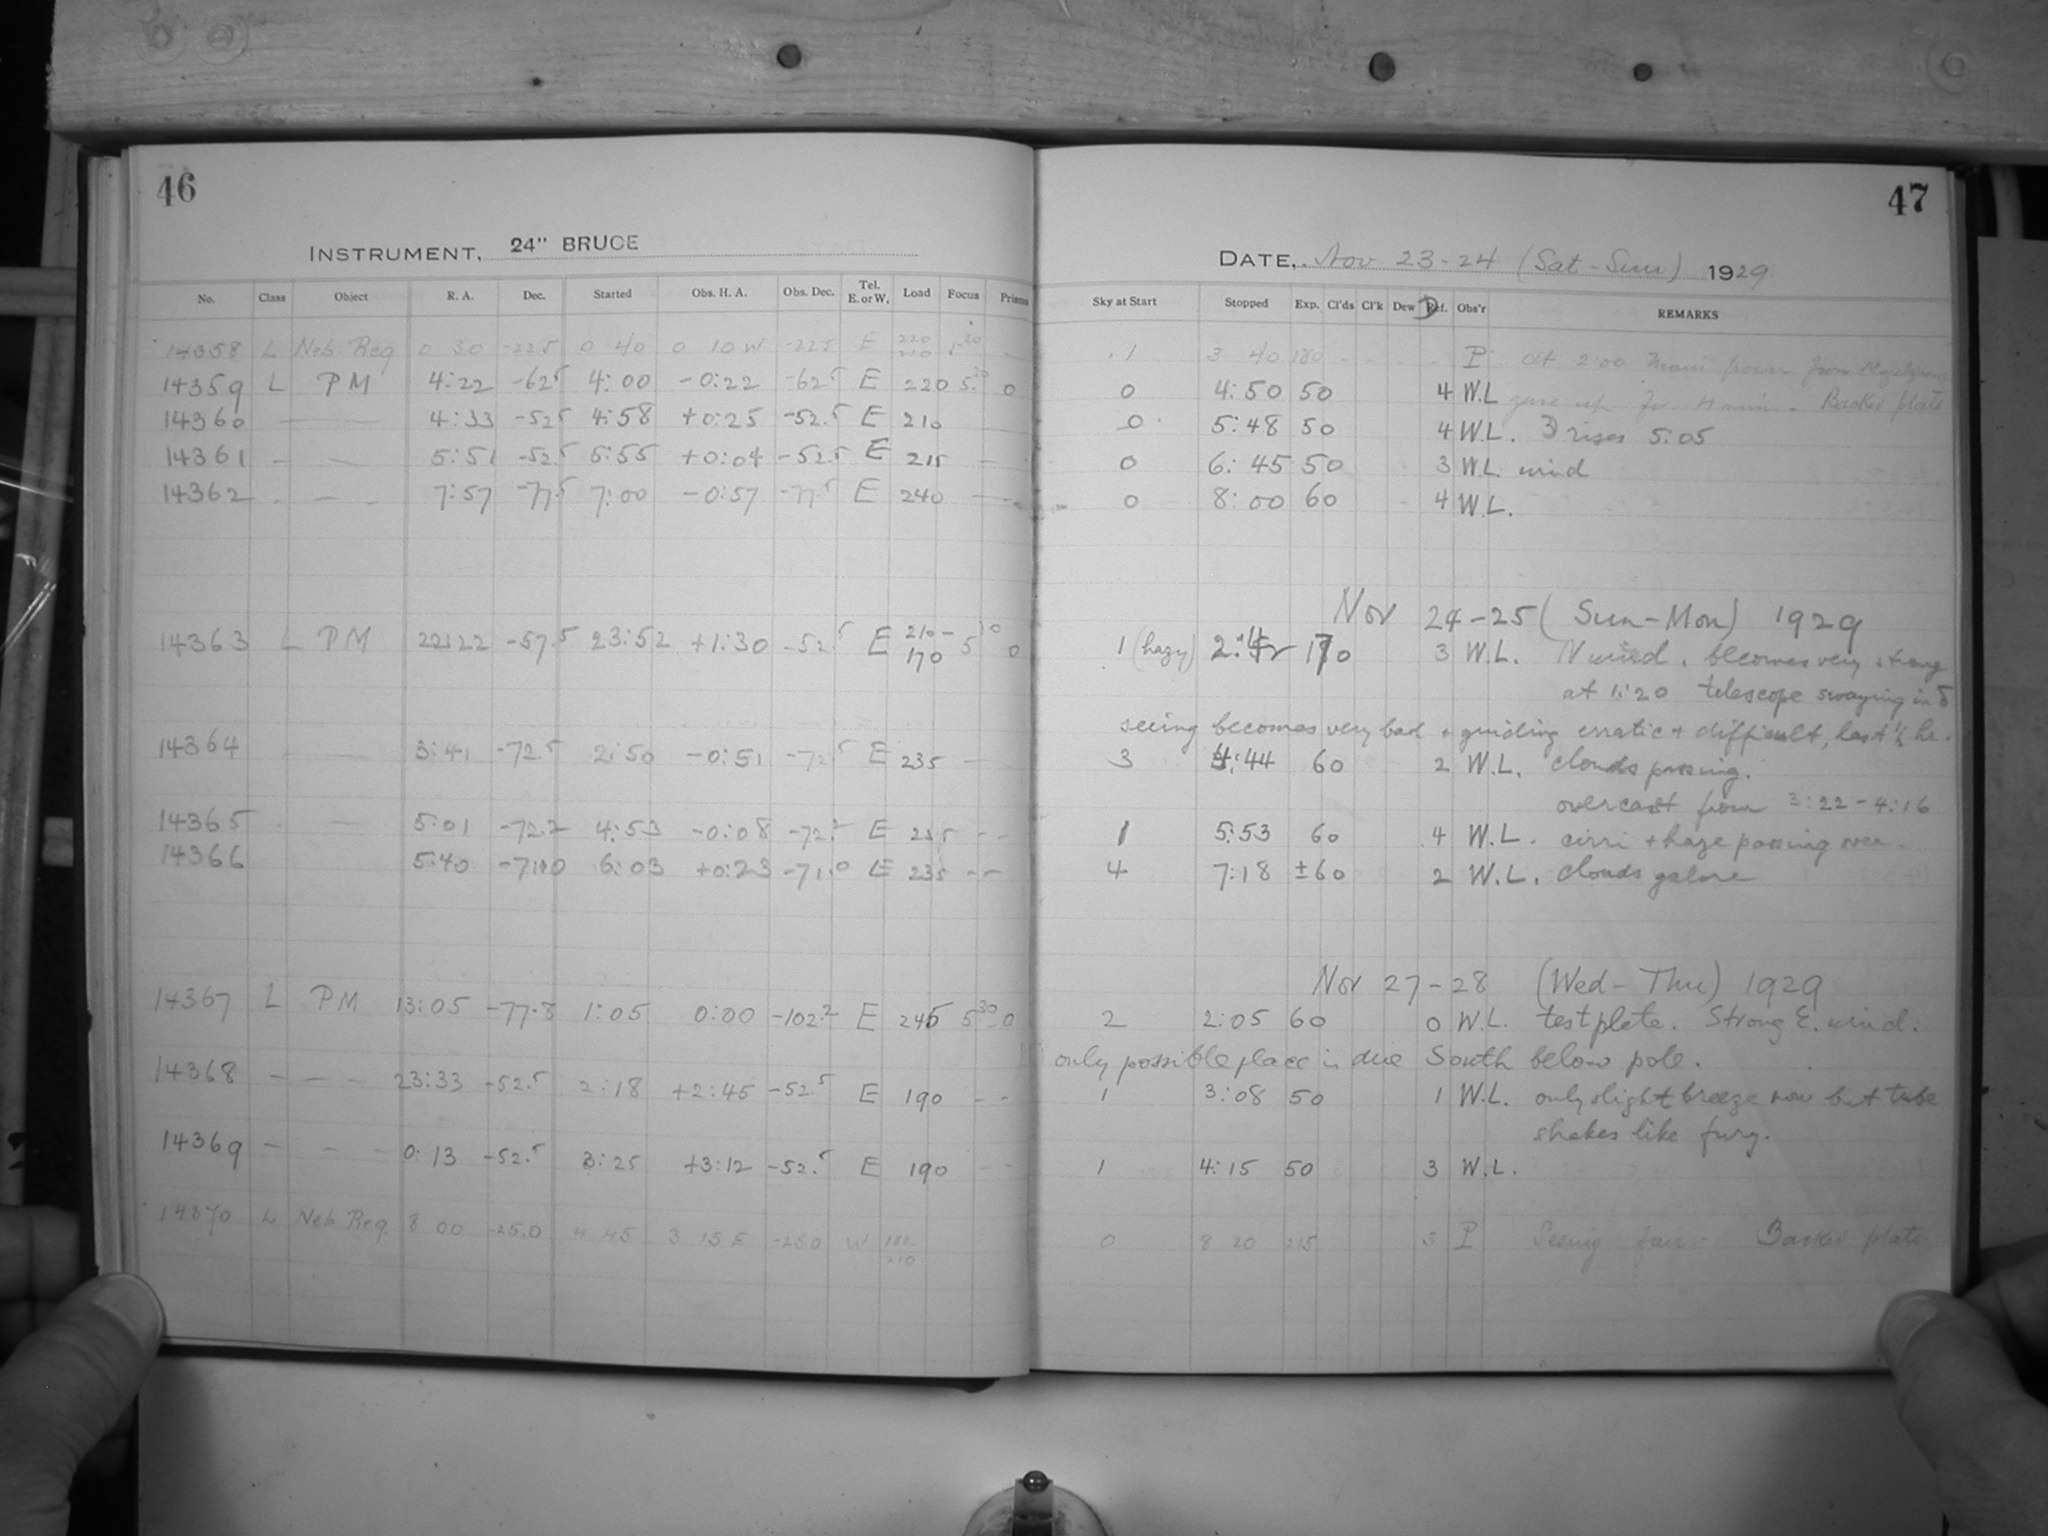 46
47
INSTRUMENT, 24" BRUCE
DATE, Nov 23-24 (Sat-Sun) 1929
No. Class Object R. A. Dec. Started Obs. H. A. Obs. Dec. Tel. E. or W. Load Focus Prisms Sky at Start Stopped Exp. Cl'ds Cl'k Dew Ref. Obs'r REMARKS
14358 L Neb. Reg 0 30 -22.5 0 40 0 10 W -22.5 E 220 210 5.20 — 1 3 40 180 P. At 2:00 main power from
14359 L PM 4:22 -62.5 4:00 -0:22 -62.5 E 220 5.20 0 0 4:50 50 4 W.L gave up for 4 min. - Backed plate
14360 — — 4:33 -52.5 4:58 +0:25 -52.5 E 210 0 5:48 50 4 W.L. rises 5:05
14361 — — 5:51 -52.5 5:55 +0:04 -52.5 E 215 — — 0 6:45 50 3 W.L. wind
14362 — — 7:57 -77.5 7:00 -0:57 -77.5 E 240 — — 0 8:00 60 4 W.L.
Nov 24-25 (Sun-Mon) 1929
14363 L PM 22:22 -57.5 23:52 +1:30 -52.5 E 210-170 5 10 0 1 (hazy) 2:42 170 3 W.L. N wind, becomes very strong
at 1:20 telescope swaying in δ
seeing becomes very bad + guiding erratic + difficult, last ½ hr.
14364 — — 3:41 -72.5 2:50 -0:51 -72.5 E 235 — 3 4:44 60 2 W.L. clouds passing.
overcast from 3:22-4:16
14365 — 5:01 -72.2 4:53 -0:08 -72.2 E 235 — — 1 5:53 60 4 W.L. cirri + haze passing over.
14366 5:40 -71.0 6:03 +0:23 -71.0 E 235 — — 4 7:18 ±60 2 W.L. clouds galore
Nov 27-28 (Wed-Thu) 1929
14367 L PM 13:05 -77.8 1:05 0:00 -102.2 E 245 5 30 0 2 2:05 60 0 W.L. test plate. Strong E. wind.
only possible place is due South below pole.
14368 — — — 23:33 -52.5 2:18 +2:45 -52.5 E 190 — — 1 3:08 50 1 W.L. only slight breeze now but tube
shakes like fury.
14369 — — — 0:13 -52.5 3:25 +3:12 -52.5 E 190 — — 1 4:15 50 3 W.L.
14370 L Neb Reg. 8 00 -25.0 4 45 3 15 E -25.0 W 180-210 0 8 20 215 3 P Seeing fair - Backed plate